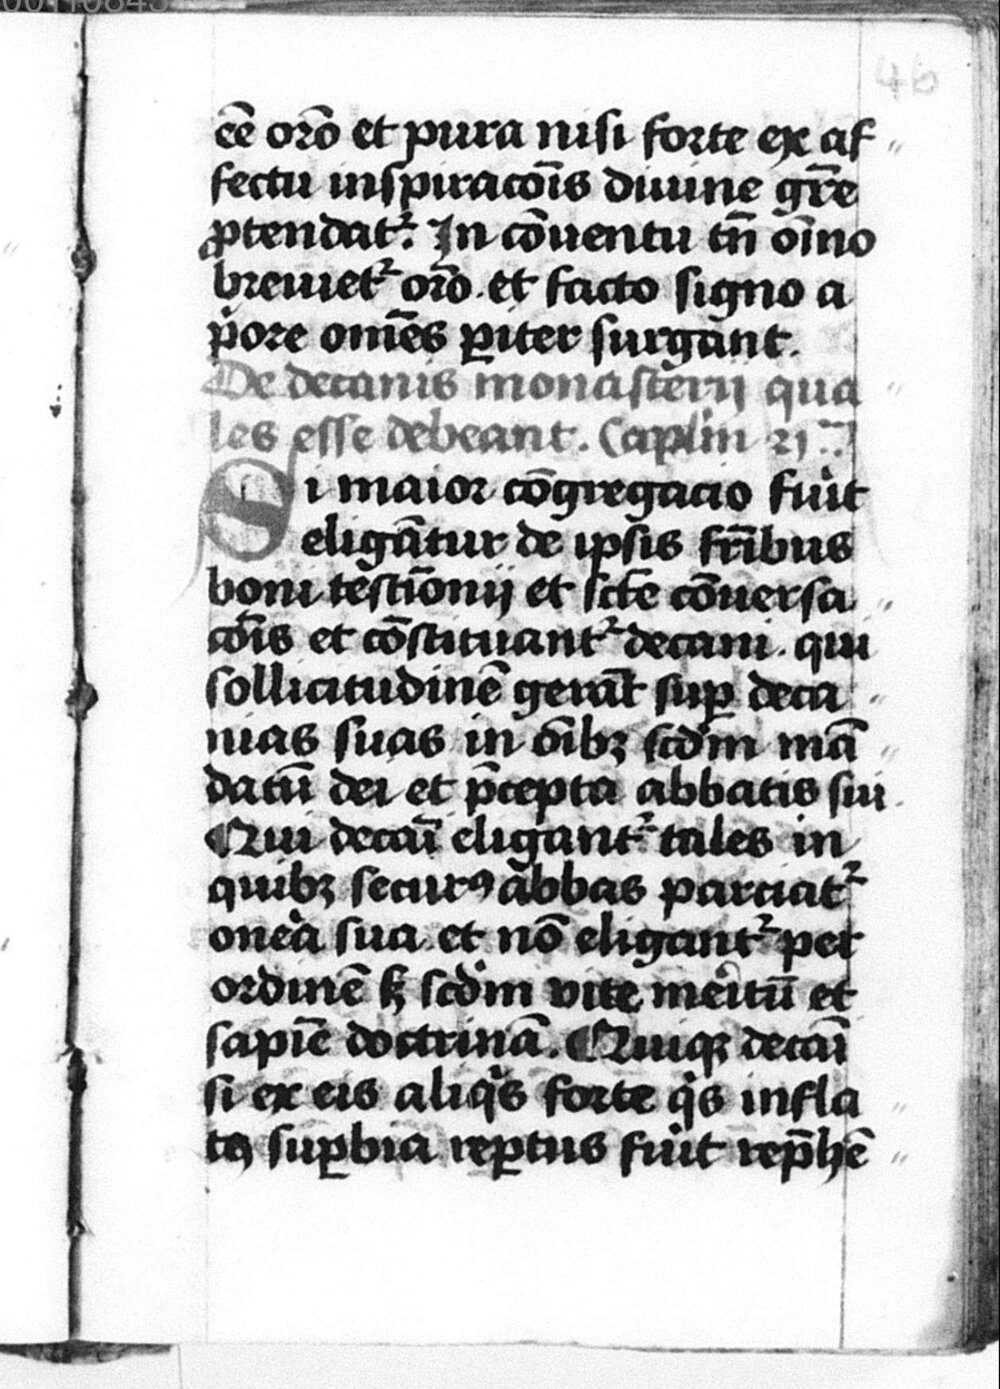 46
ēe orō et pura nisi forte ex af
fectu inspiracōis diuine gr̄e
ꝓtendatᷣ. In cōuentu tn̄ oīno
breuietᷣ orō. et facto signo a
p̓ore om̄es ꝑiter surgant.
De decanis monast̄erij qua
les esse debeant. Caplm̄ 21
Si maior cōgregacio fu̓it
eligātur de ipsis fr̄ibus
boni testīonij et scte cōuersa
cōis et cōstituantᷣ decani. qui
sollicitudinē gerāt suꝑ deca
nias suas in oībꝫ scd̓m mā
datū dei et p̄cepta abbatis sui.
Qui decāi eligantᷣ tales in
quibꝫ securꝯ abbas parciatᷣ
one̓a sua et nō eligantᷣ per
ordinē sꝫ scd̓m vite me̓itū et
sapīe doctrinā. Quiqꝫ decāi
si ex eis aliq̓s forte q̓s infla
tꝯ suꝑbia reꝑtus fu̓it rep̄hē